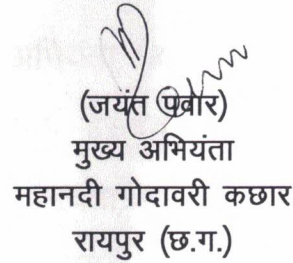 (जयंत पवार)
मुख्य अभियंता
महानदी गोदावरी कछार
रायपुर (छ.ग.)